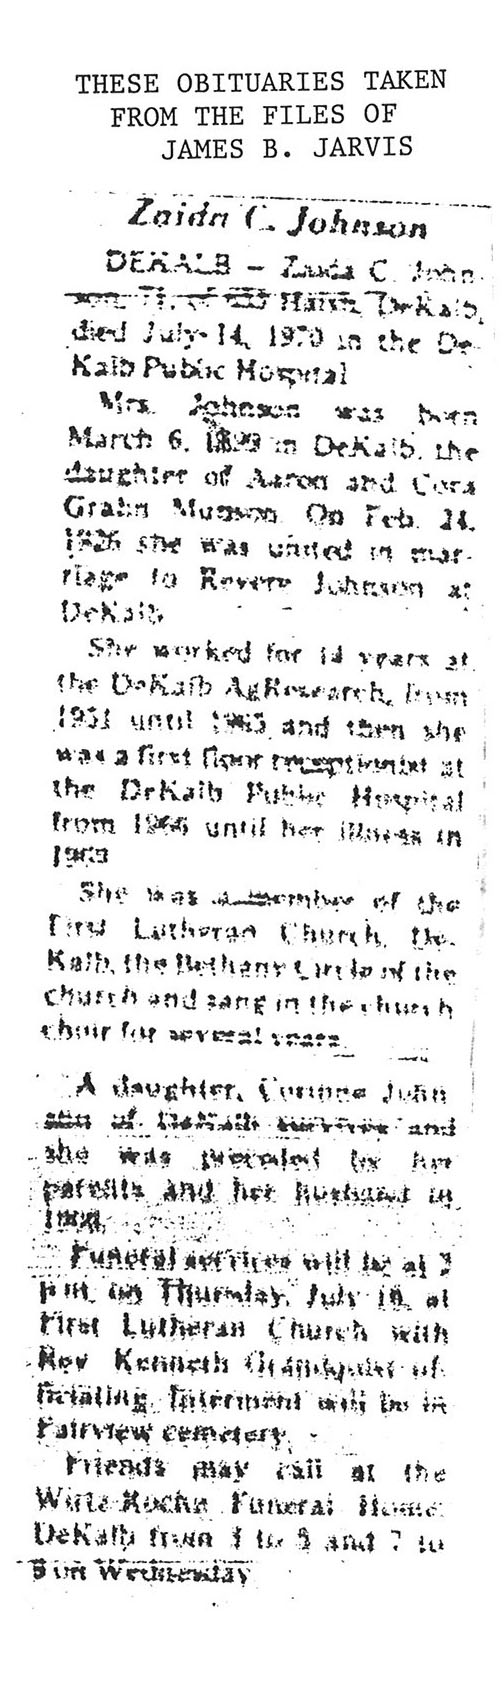 THESE OBITUARIES TAKEN
FROM THE FILES OF
JAMES B. JARVIS
Zaida C. Johnson
DEKALB – Zaida C. John-
son, 71, of Harsh, DeKalb,
died July 14, 1970 in the De-
Kalb Public Hospital
Mrs. Johnson was born
March 6, 1899 in DeKalb, the
daughter of Aaron and Cora
Grahn Munson. On Feb. 24,
1926 she was united in mar-
riage to Revere Johnson at
DeKalb
She worked for 14 years at
the DeKalb AgResearch, from
1951 until 1965 and then she
was a first floor receptionist at
the DeKalb Public Hospital
from 1966 until her illness in
She was a member of the
First Lutheran Church, De-
Kalb, the Bethany Circle of the
church and sang in the church
choir for several years.
A daughter, Corinne John-
son of DeKalb survives and
she was preceded by her
parents and her husband in
Funeral services will be at 2
p.m. on Thursday, July at
First Lutheran Church with
Rev Kenneth Grandquist of-
ficiating. Interment will be in
Fairview cemetery.
Friends may call at the
Wirtz-Rochn Funeral Home
DeKalb from to 5 and 7 to
9 on Wednesday